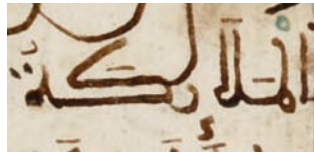 الملائكة